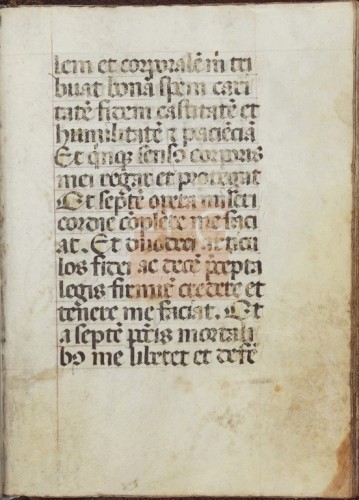 lem et corporalē m̄ tri
buat bona spem cari
tatē fidem castitatē et
humilitatē ⁊ paciēcia
Et q̄nq̄ senso corporis
mei regat et protegat
Et septē opera miseri
cordie cōplere me faci
at. Et duodeci articu
los fidei ac decē p̄cepta
legis firmit̄ credere et
tenere me faciat. Et
a septē p̄tis mortali
bꝰ me liberet et defē